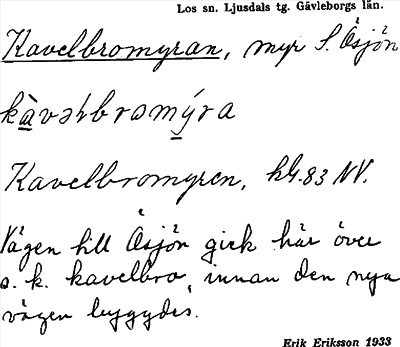 Los sn. Ljusdals tg. Gävleborgs län.
Kavelbromyran, myr S. Åsjön
Kavelbromyren, hG.83 NV.
Vägen till Åsjön gick här över
s. k. kavelbro, innan den nya
vägen byggdes.
Erik Eriksson 1933